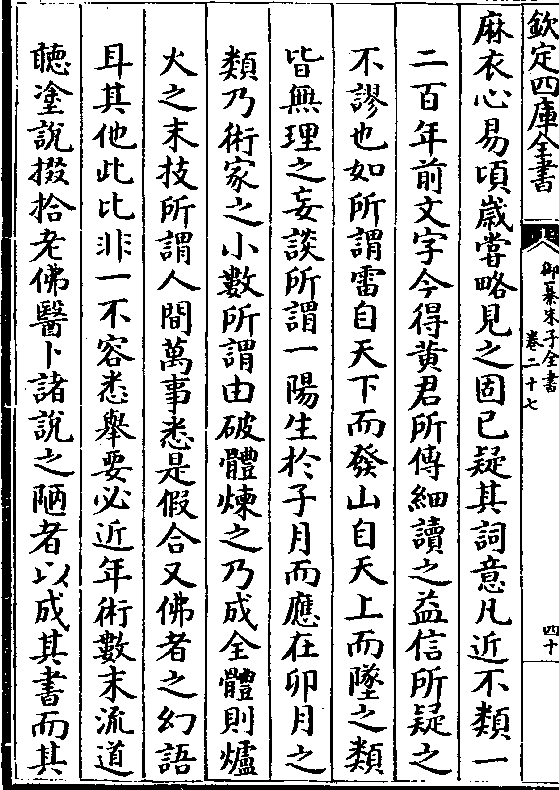 欽定四庫全書
御纂朱子全書
卷二十七
四十
麻衣心易頃歲嘗略見之固已疑其詞意凡近不類一
二百年前文字今得黄君所傳細讀之益信所疑之
不謬也如所謂雷自天下而發山自天上而墜之類
皆無理之妄談所謂一陽生於子月而應在卯月之
類乃術家之小數所謂由破體煉之乃成全體則爐
火之末技所謂人間萬事悉是假合又佛者之幻語
耳其他此比非一不容悉舉要必近年術數末流道
聴塗說掇拾老佛醫卜諸説之陋者以成其書而其